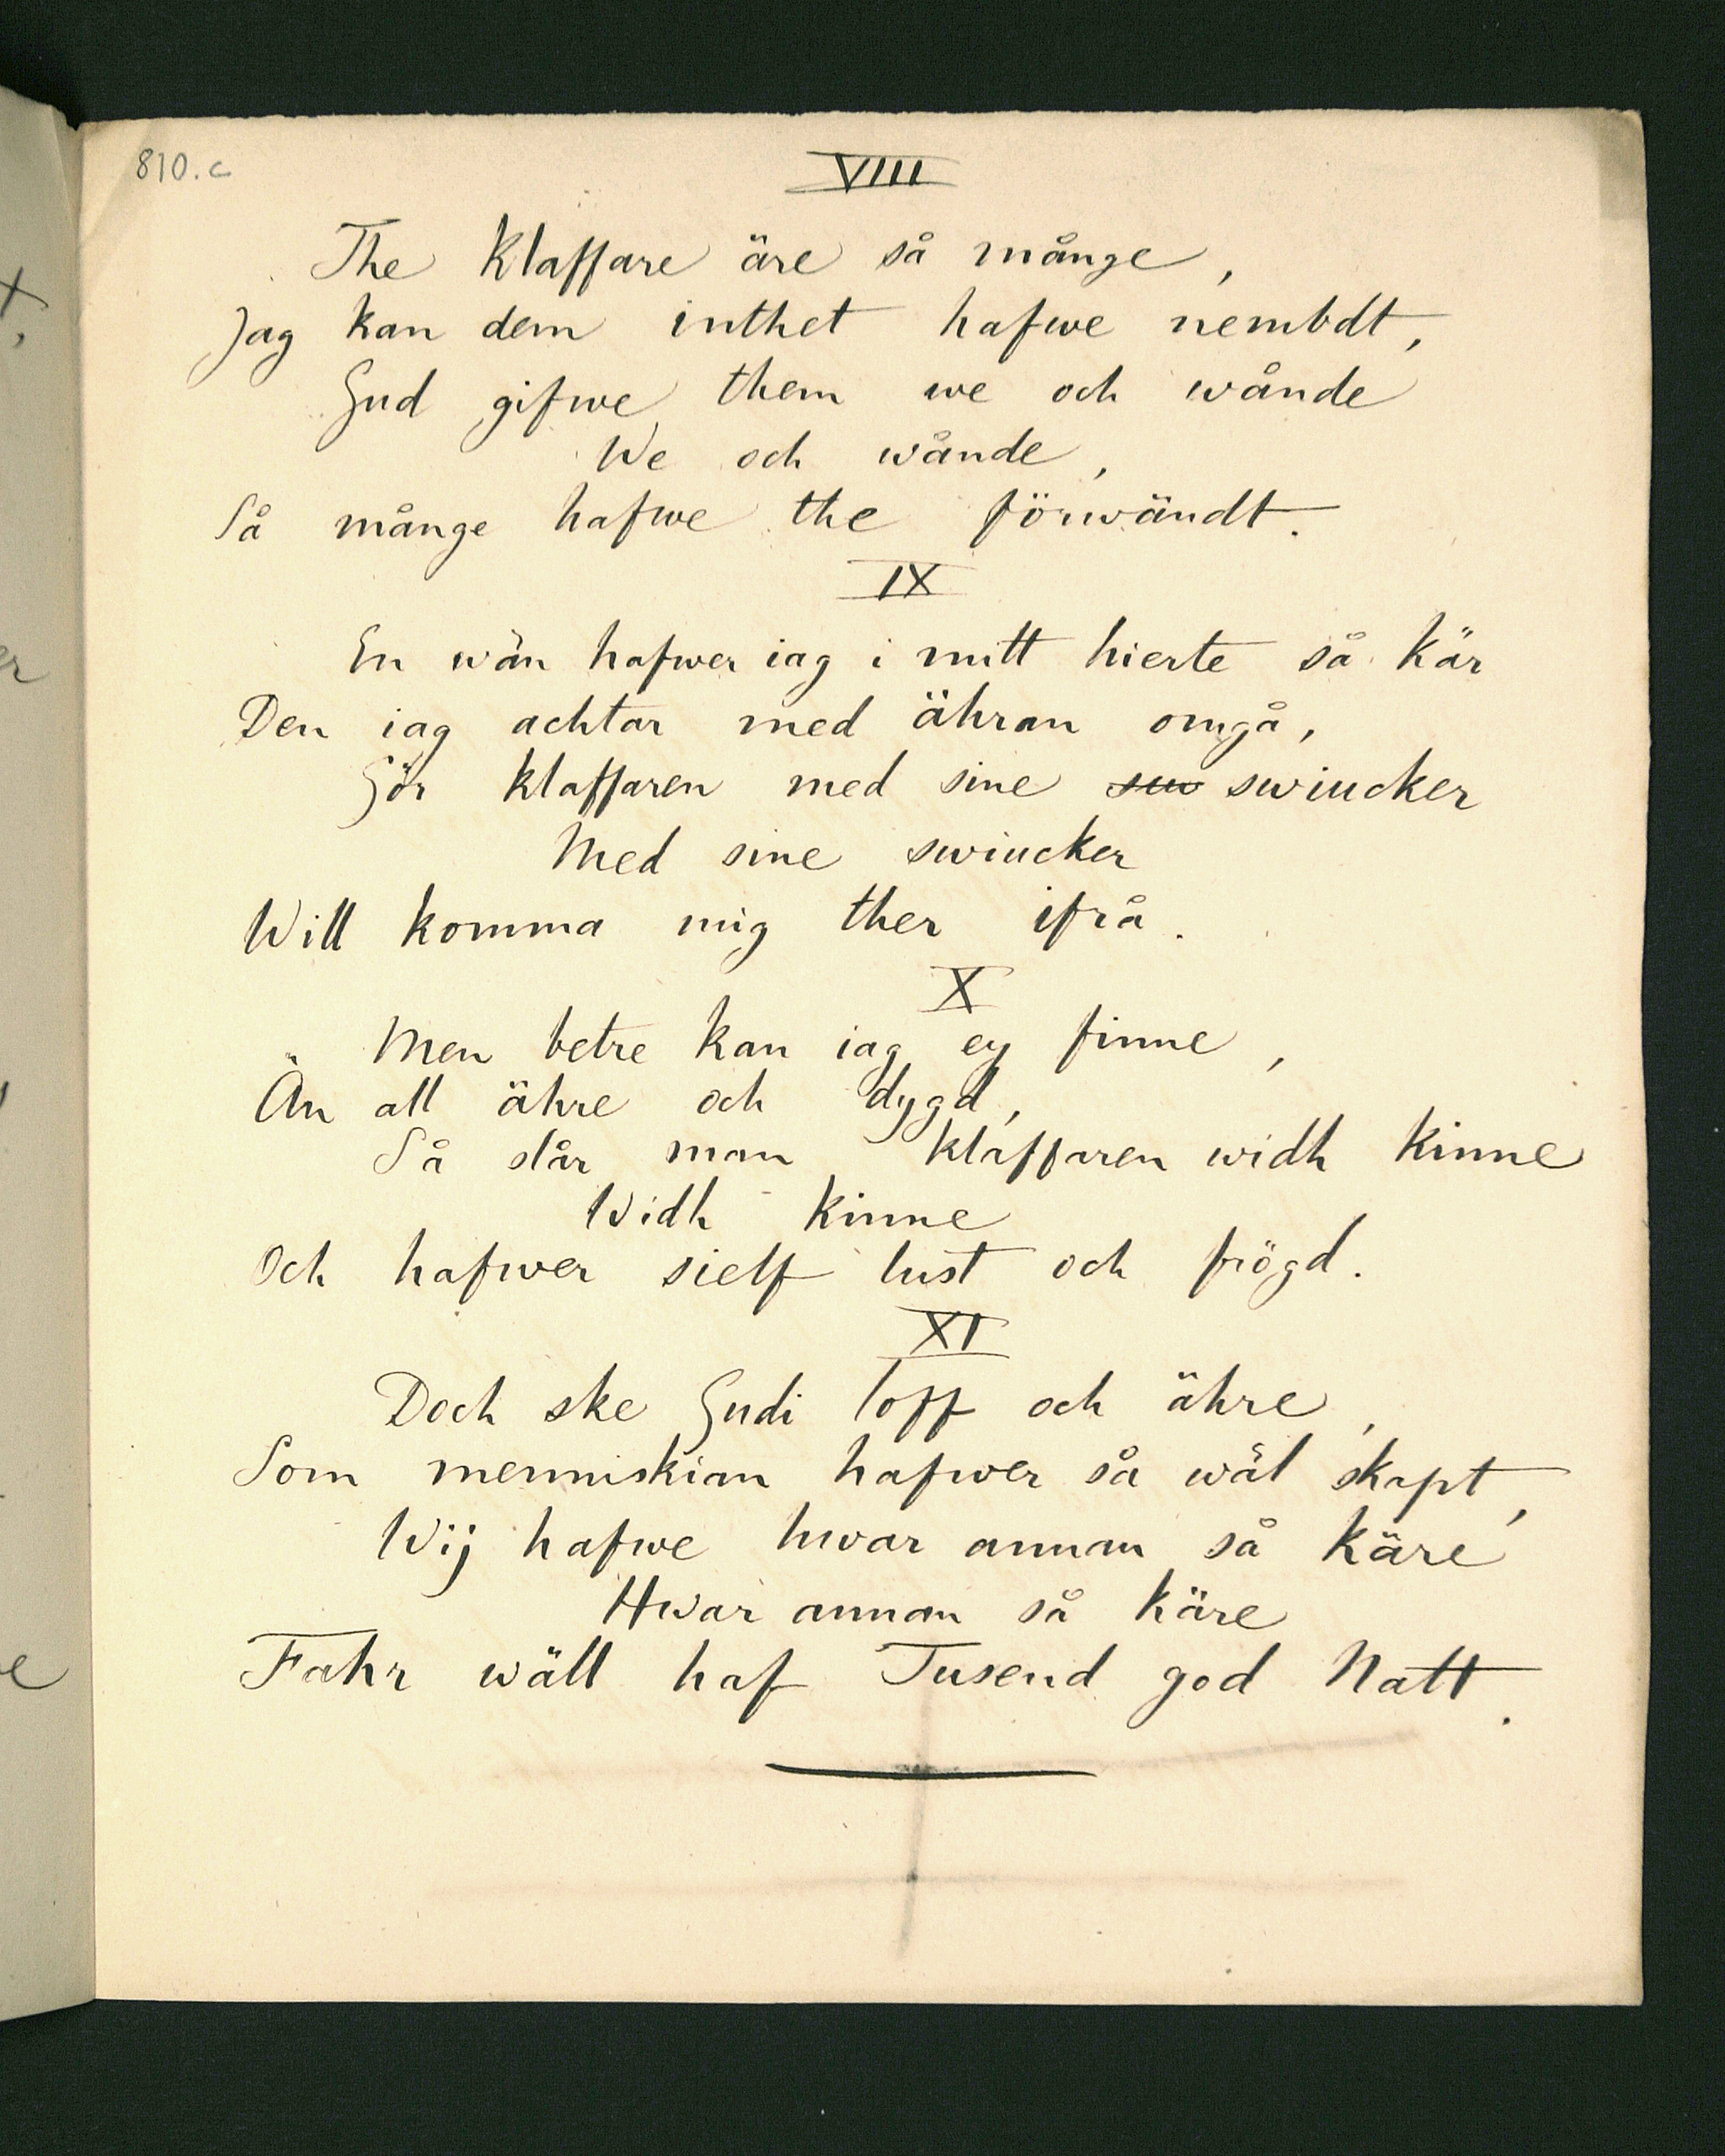 810.c
VIII
The Klaffare äre så många,
Jag kan dem inthet hafwe nembdt,
Gud gifwe them we och wånde
We och wånde,
Så månge hafwe the förwändt.
IX
En wän hafwer iag i mitt hierte så kär
Den iag achtar med ähran omgå,
Gör klaffaren med sine suw swiucker
Med sine swiucker
Will komma mig ther ifrå.
X
Men betre kan iag ey finne,
Än all ähre och dygd,
Så slår man klaffaren widh kinne
Widh kinne
Och hafwer sielf lust och frögd.
XI
Doch ske Gudi loff och ähre,
Som menniskian hafwer så wäl skapt,
Wij hafwe hwar annan så käre
Hwar annan så käre
Fahr wäll haf Tusend god Natt.